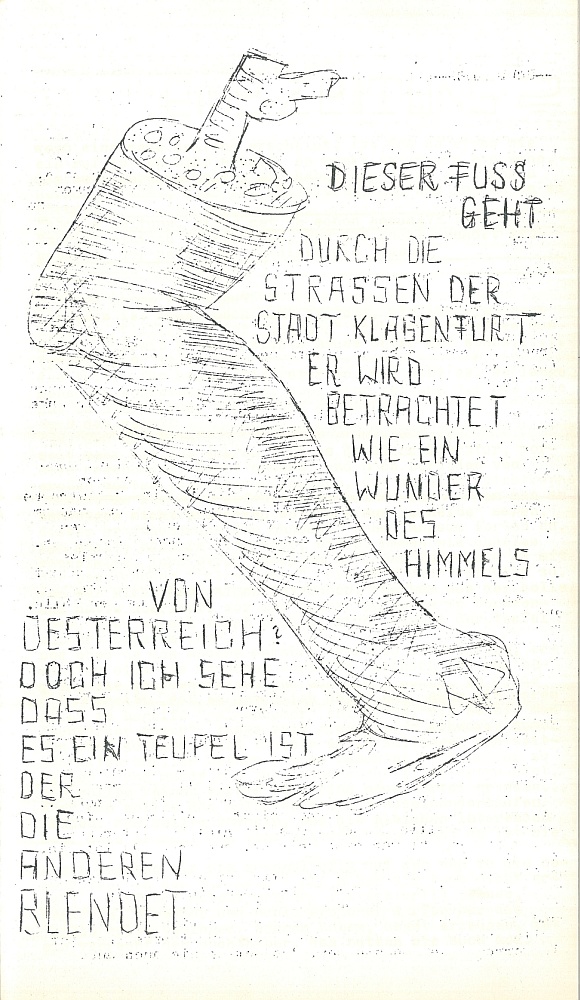 DIESER FUSS
GEHT
DURCH DIE
STRASSEN DER
STADT KLAGENFURT
ER WIRD
BETRACHTET
WIE EIN
WUNDER
DES
HIMMELS
VON
OESTERREICH?
DOCH ICH SEHE
DASS
ES EIN TEUFEL IST
DER
DIE
ANDEREN
BLENDET